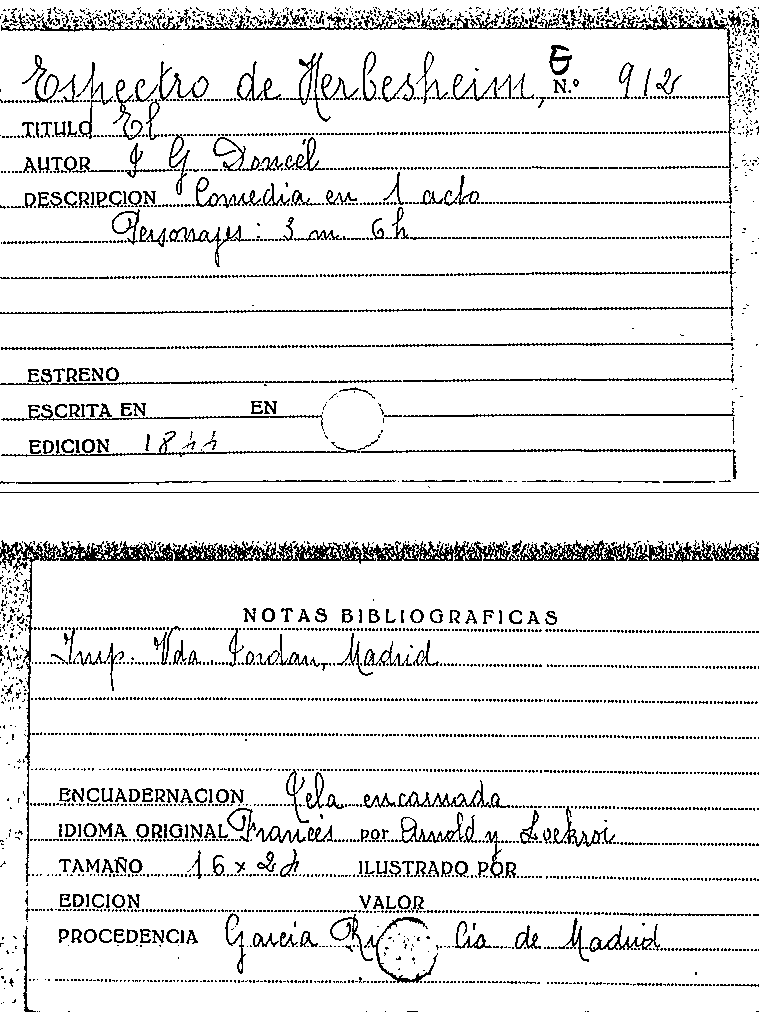 E
Espectro de Herbesheim, N.º 912
TITULO El
AUTOR J G Doncél
DESCRIPCION Comedia en 1 acto
Personajes: 3 m. 6 h.
ESTRENO
ESCRITA EN EN
EDICION 1844
NOTAS BIBLIOGRAFICAS
Imp. Vda. Jordan, Madrid
ENCUADERNACION Tela encarnada
IDIOMA ORIGINAL Francés por Arnold y Loekroi
TAMAÑO 16 x 24 ILUSTRADO POR
EDICION VALOR
PROCEDENCIA Garcia Cia de Madrid